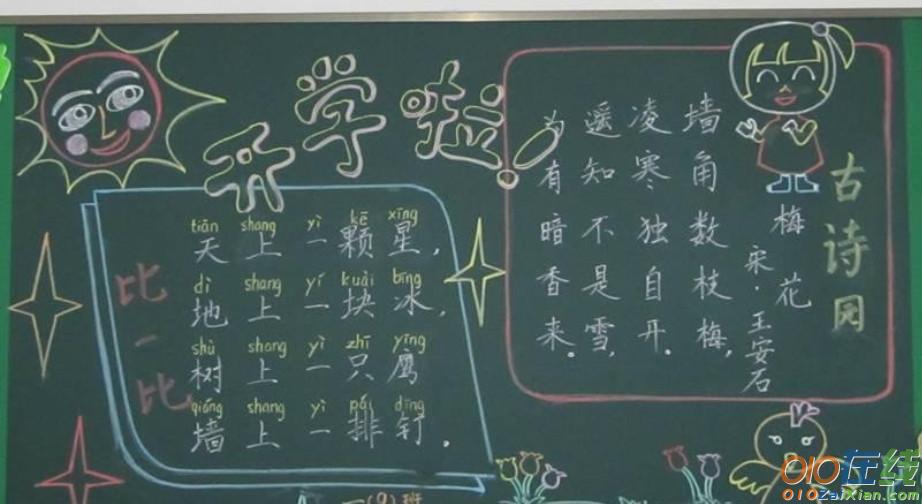 开学啦!
比一比
tiān shang yì kē xīng
天上一颗星,
dì shang yí kuài bīng
地上一块冰,
shù shang yì zhī yīng
树上一只鹰
qiáng shang yì pái dīng
墙上一排钉.
古诗园
梅花
宋·王安石
墙角数枝梅,
凌寒独自开.
遥知不是雪,
为有暗香来.
一(9)班
010在线
010zaixian.com